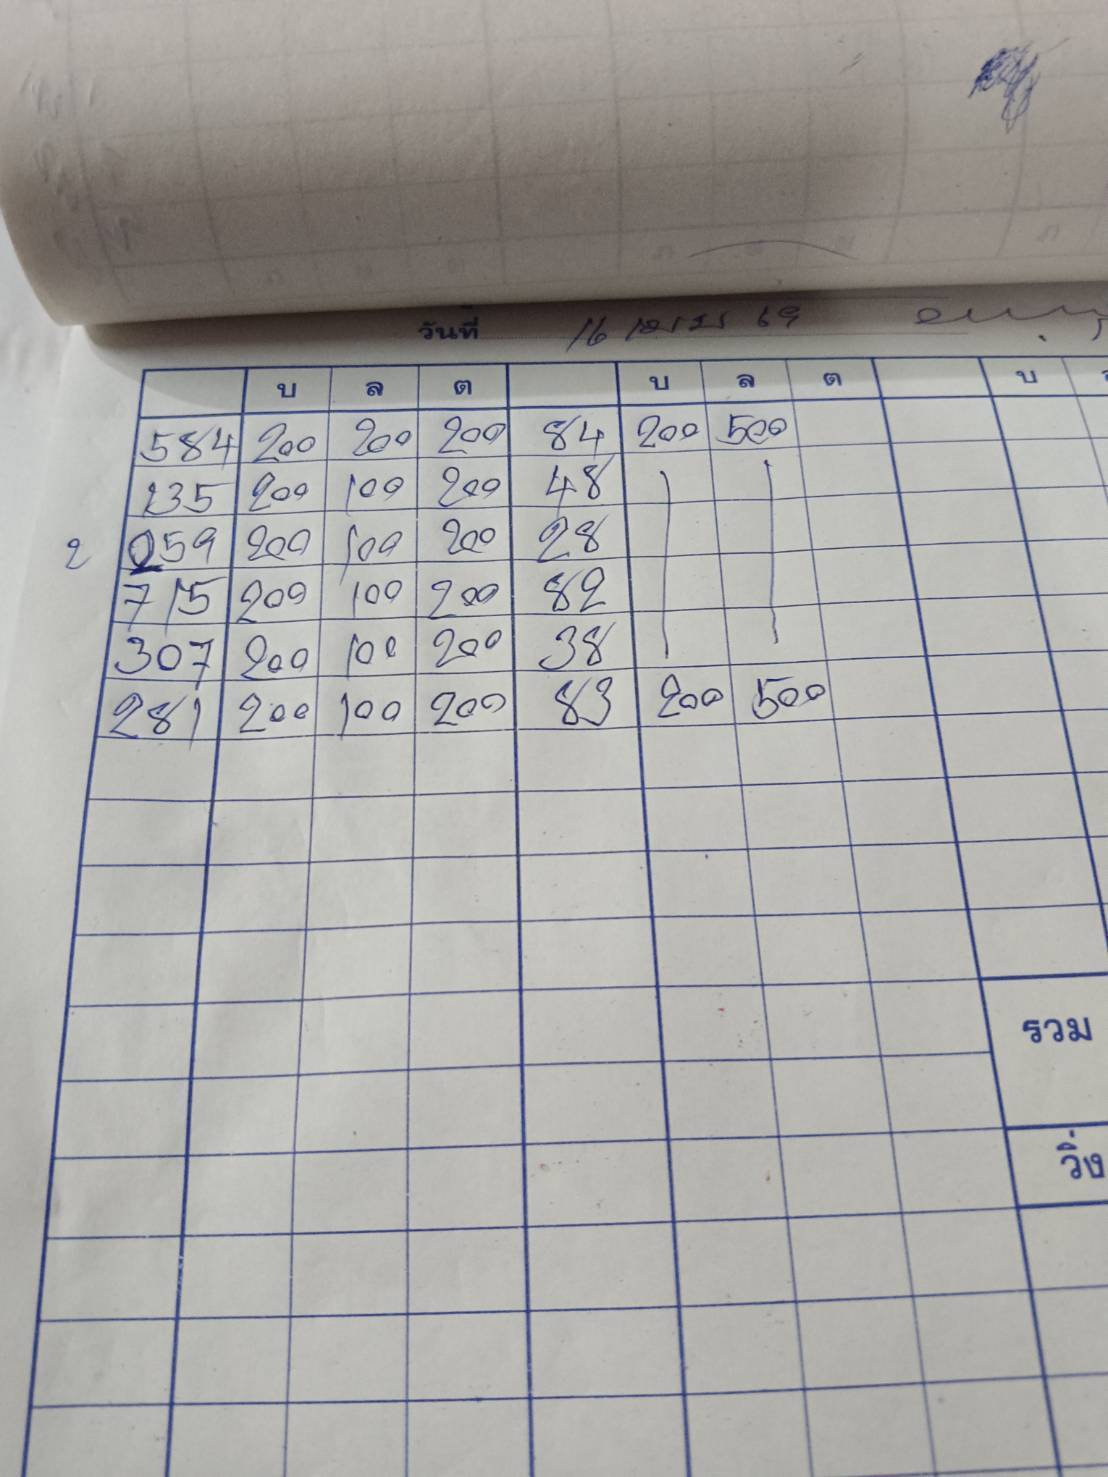 วันที่ 16 เมษ 69
บ ล ต บ ล ต บ
584 200 200 200 84 200 500
235 200 100 200 48
2 259 200 100 200 28
715 200 100 200 82
307 200 100 200 38
281 200 100 200 83 200 500
รวม
วิ่ง